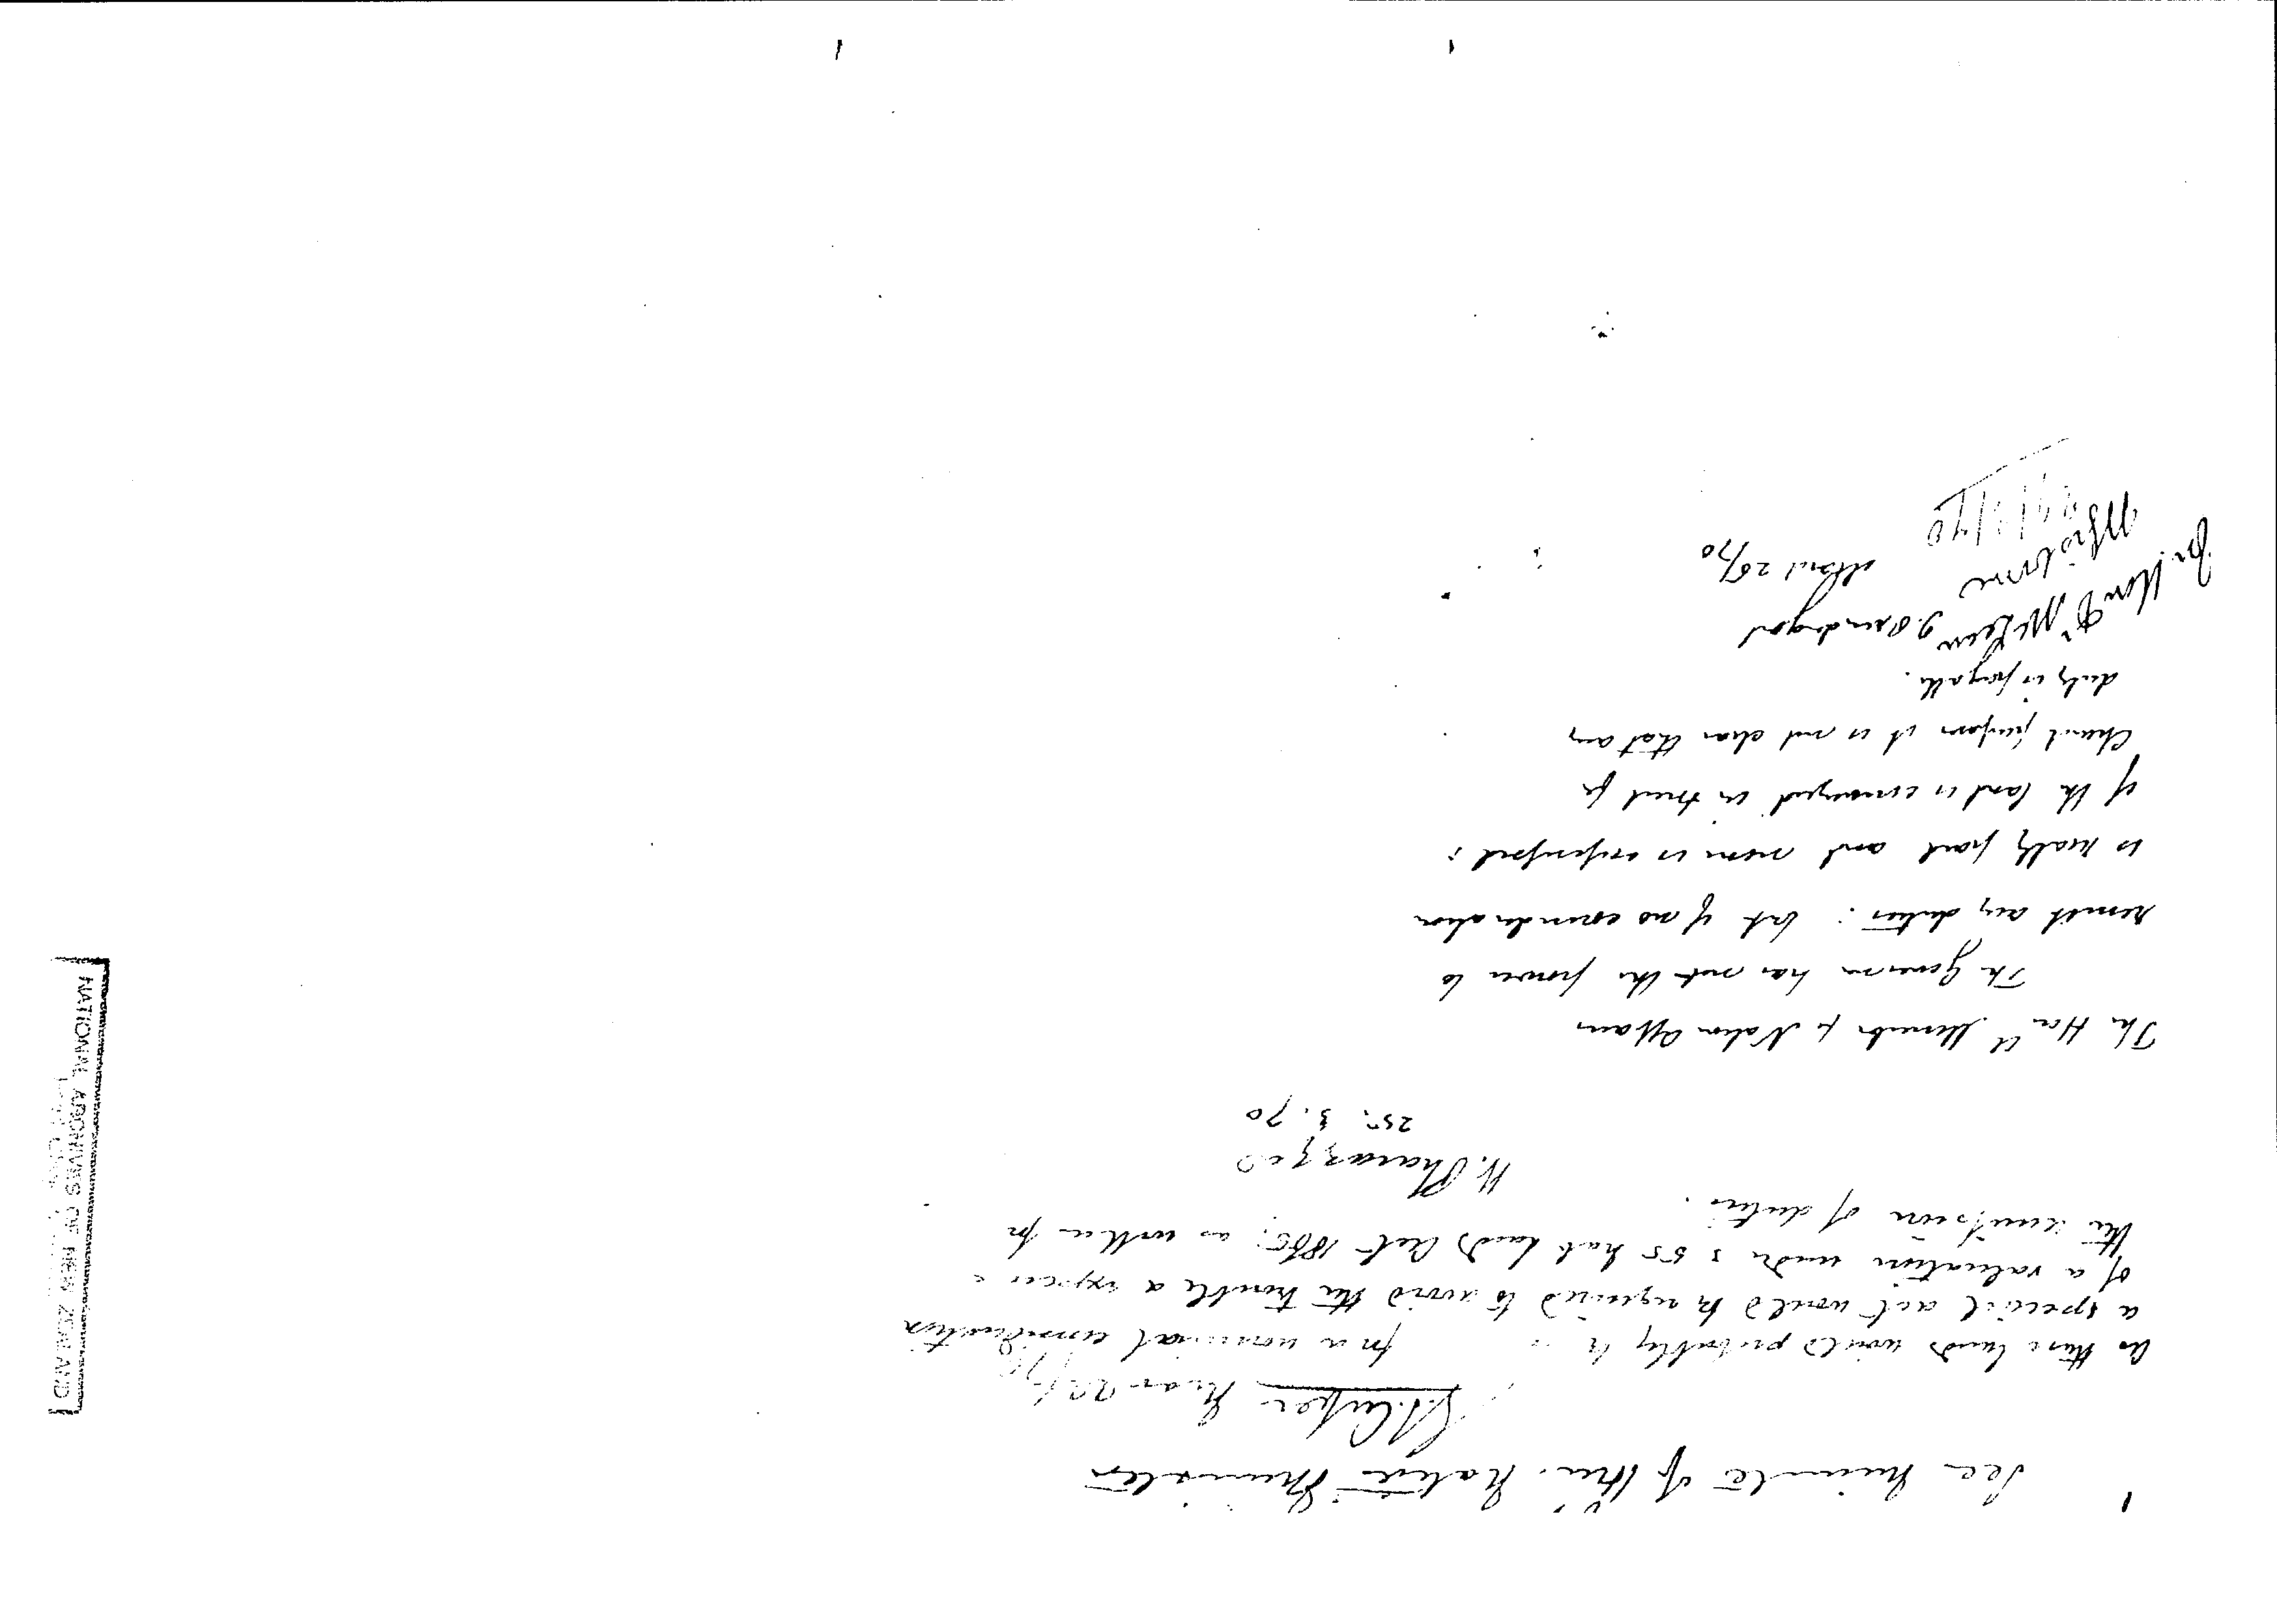 See minute of Hon. Native Minister
G. S. Cooper Mar 22/70
As these lands would probably be for a nominal consideration
a special act would be required to avoid the trouble & expense
of a valuation under s 55 Nat Lands Act 1865; as well as for
the remission of duties.
25. 3. 70
The Hon. the Minister for Native Affairs
The Governor has not the power to
remit any duties: but if no consideration
is really paid and none is expressed:
if the land is conveyed in trust for
Church purposes it is not clear that any
duty is payable.
J. Prendergast
March 25/70
NATIONAL ARCHIVES OF NEW ZEALAND